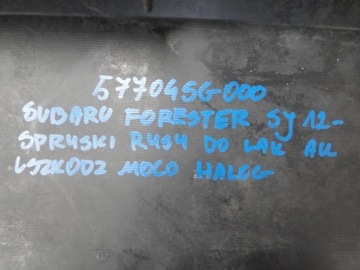 57704SG000
SUBARU FORESTER SJ 12-
SPRYSKI RYSY DO LAK AU
USZKODZ MOCO HALOG